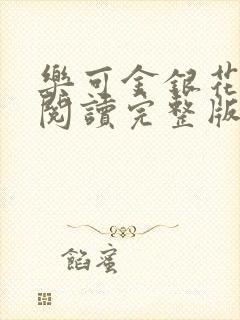 樂可金銀花
閱讀完整版
餡蜜